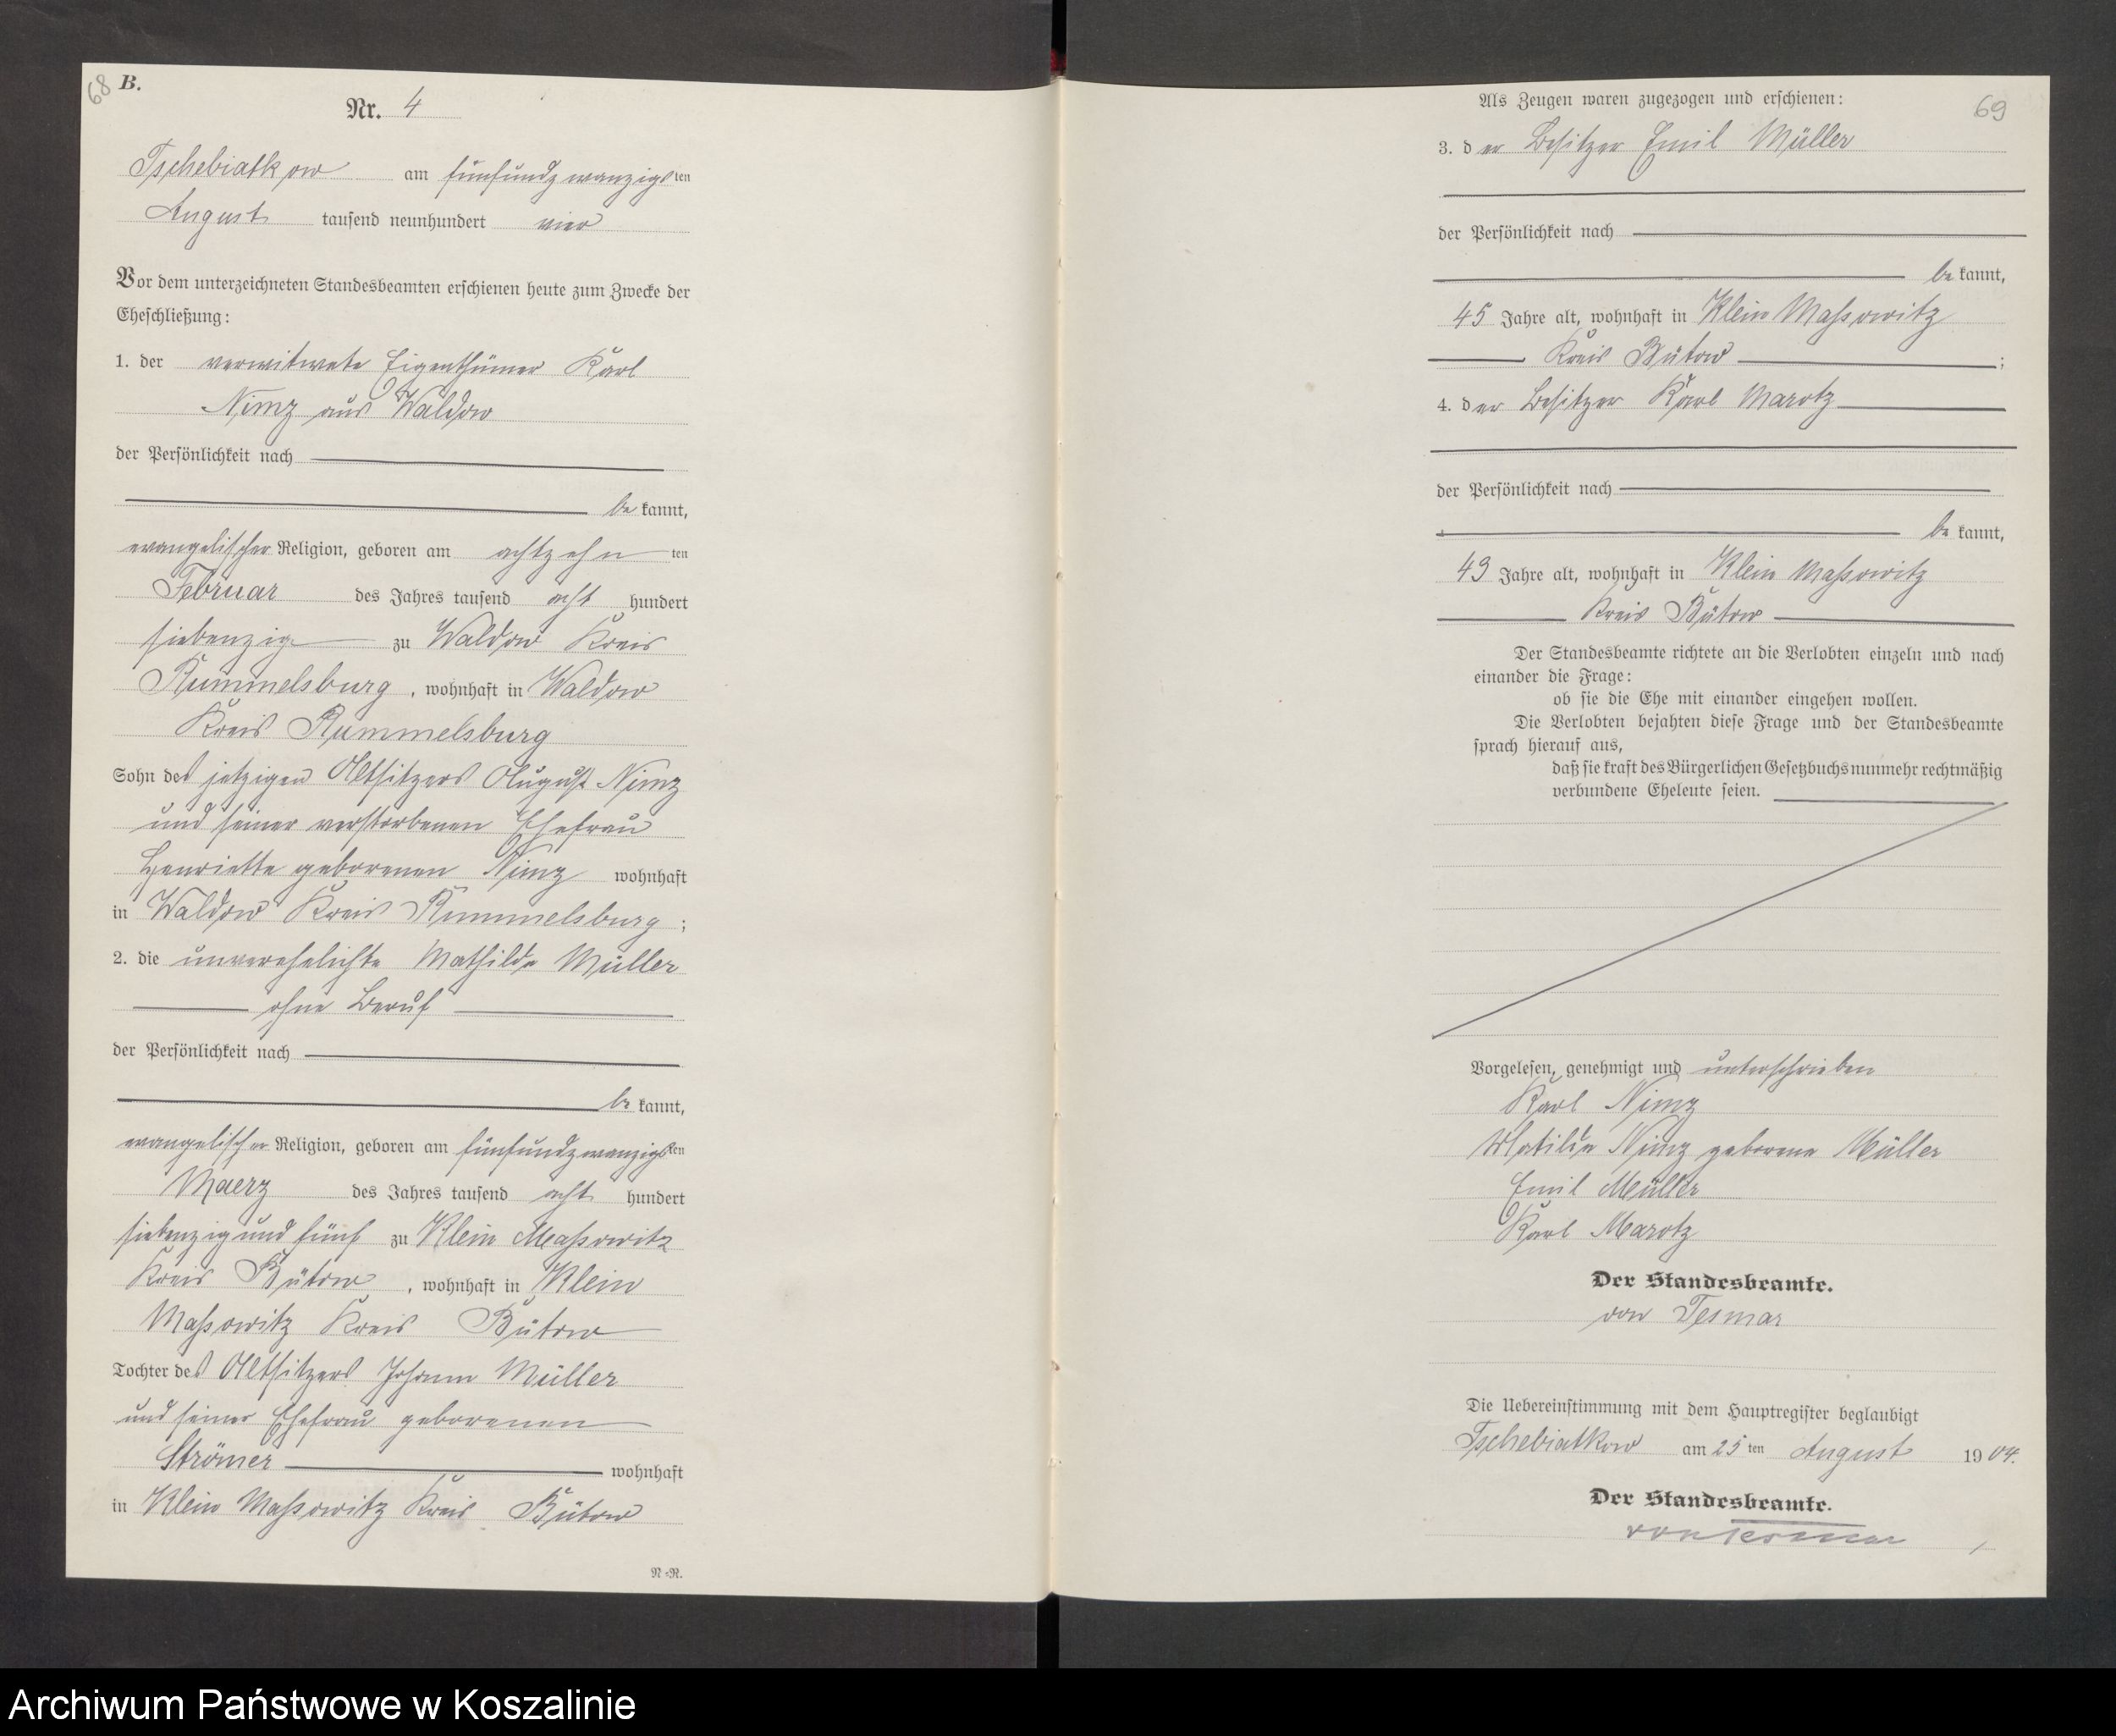 68
B.
Nr. 4
Tschebiatkow am fünfundzwanzigsten
August tausend neunhundert vier
Vor dem unterzeichneten Standesbeamten erschienen heute zum Zwecke der
Eheschließung:
1. der verwitwete Eigenthümer Karl
Nimz aus Waldow
der Persönlichkeit nach
be kannt,
evangelischer Religion, geboren am achtzehn ten
Februar des Jahres tausend acht hundert
siebenzig zu Waldow Kreis
Rummelsburg, wohnhaft in Waldow
Kreis Rummelsburg
Sohn des jetzigen Altsitzers August Nimz
und seiner verstorbenen Ehefrau
Henriette geborenen Nimz wohnhaft
in Waldow Kreis Rummelsburg;
2. die unverehelichte Mathilde Müller
ohne Beruf
der Persönlichkeit nach
be kannt,
evangelischer Religion, geboren am fünfundzwanzigsten
Maerz des Jahres tausend acht hundert
siebenzig und fünf zu Klein Massowitz
Kreis Bütow, wohnhaft in Klein
Massowitz Kreis Bütow
Tochter des Altsitzers Johann Müller
und seiner Ehefrau geborenen
Strömer wohnhaft
in Klein Massowitz Kreis Bütow
N-R.
69
Als Zeugen waren zugezogen und erschienen:
3. der Besitzer Emil Müller
der Persönlichkeit nach
be kannt,
45 Jahre alt, wohnhaft in Klein Massowitz
Kreis Bütow;
4. der Besitzer Karl Marotz
der Persönlichkeit nach
be kannt,
43 Jahre alt, wohnhaft in Klein Massowitz
Kreis Bütow
Der Standesbeamte richtete an die Verlobten einzeln und nach
einander die Frage:
ob sie die Ehe mit einander eingehen wollen.
Die Verlobten bejahten diese Frage und der Standesbeamte
sprach hierauf aus,
daß sie kraft des Bürgerlichen Gesetzbuchs nunmehr rechtmäßig
verbundene Eheleute seien.
Vorgelesen, genehmigt und unterschrieben
Karl Nimz
Matilde Nimz geborene Müller
Emil Müller
Karl Marotz
Der Standesbeamte.
von Tesmar
Die Uebereinstimmung mit dem Hauptregister beglaubigt
Tschebiatkow am 25 ten August 1904.
Der Standesbeamte.
von Tesmar
Archiwum Państwowe w Koszalinie